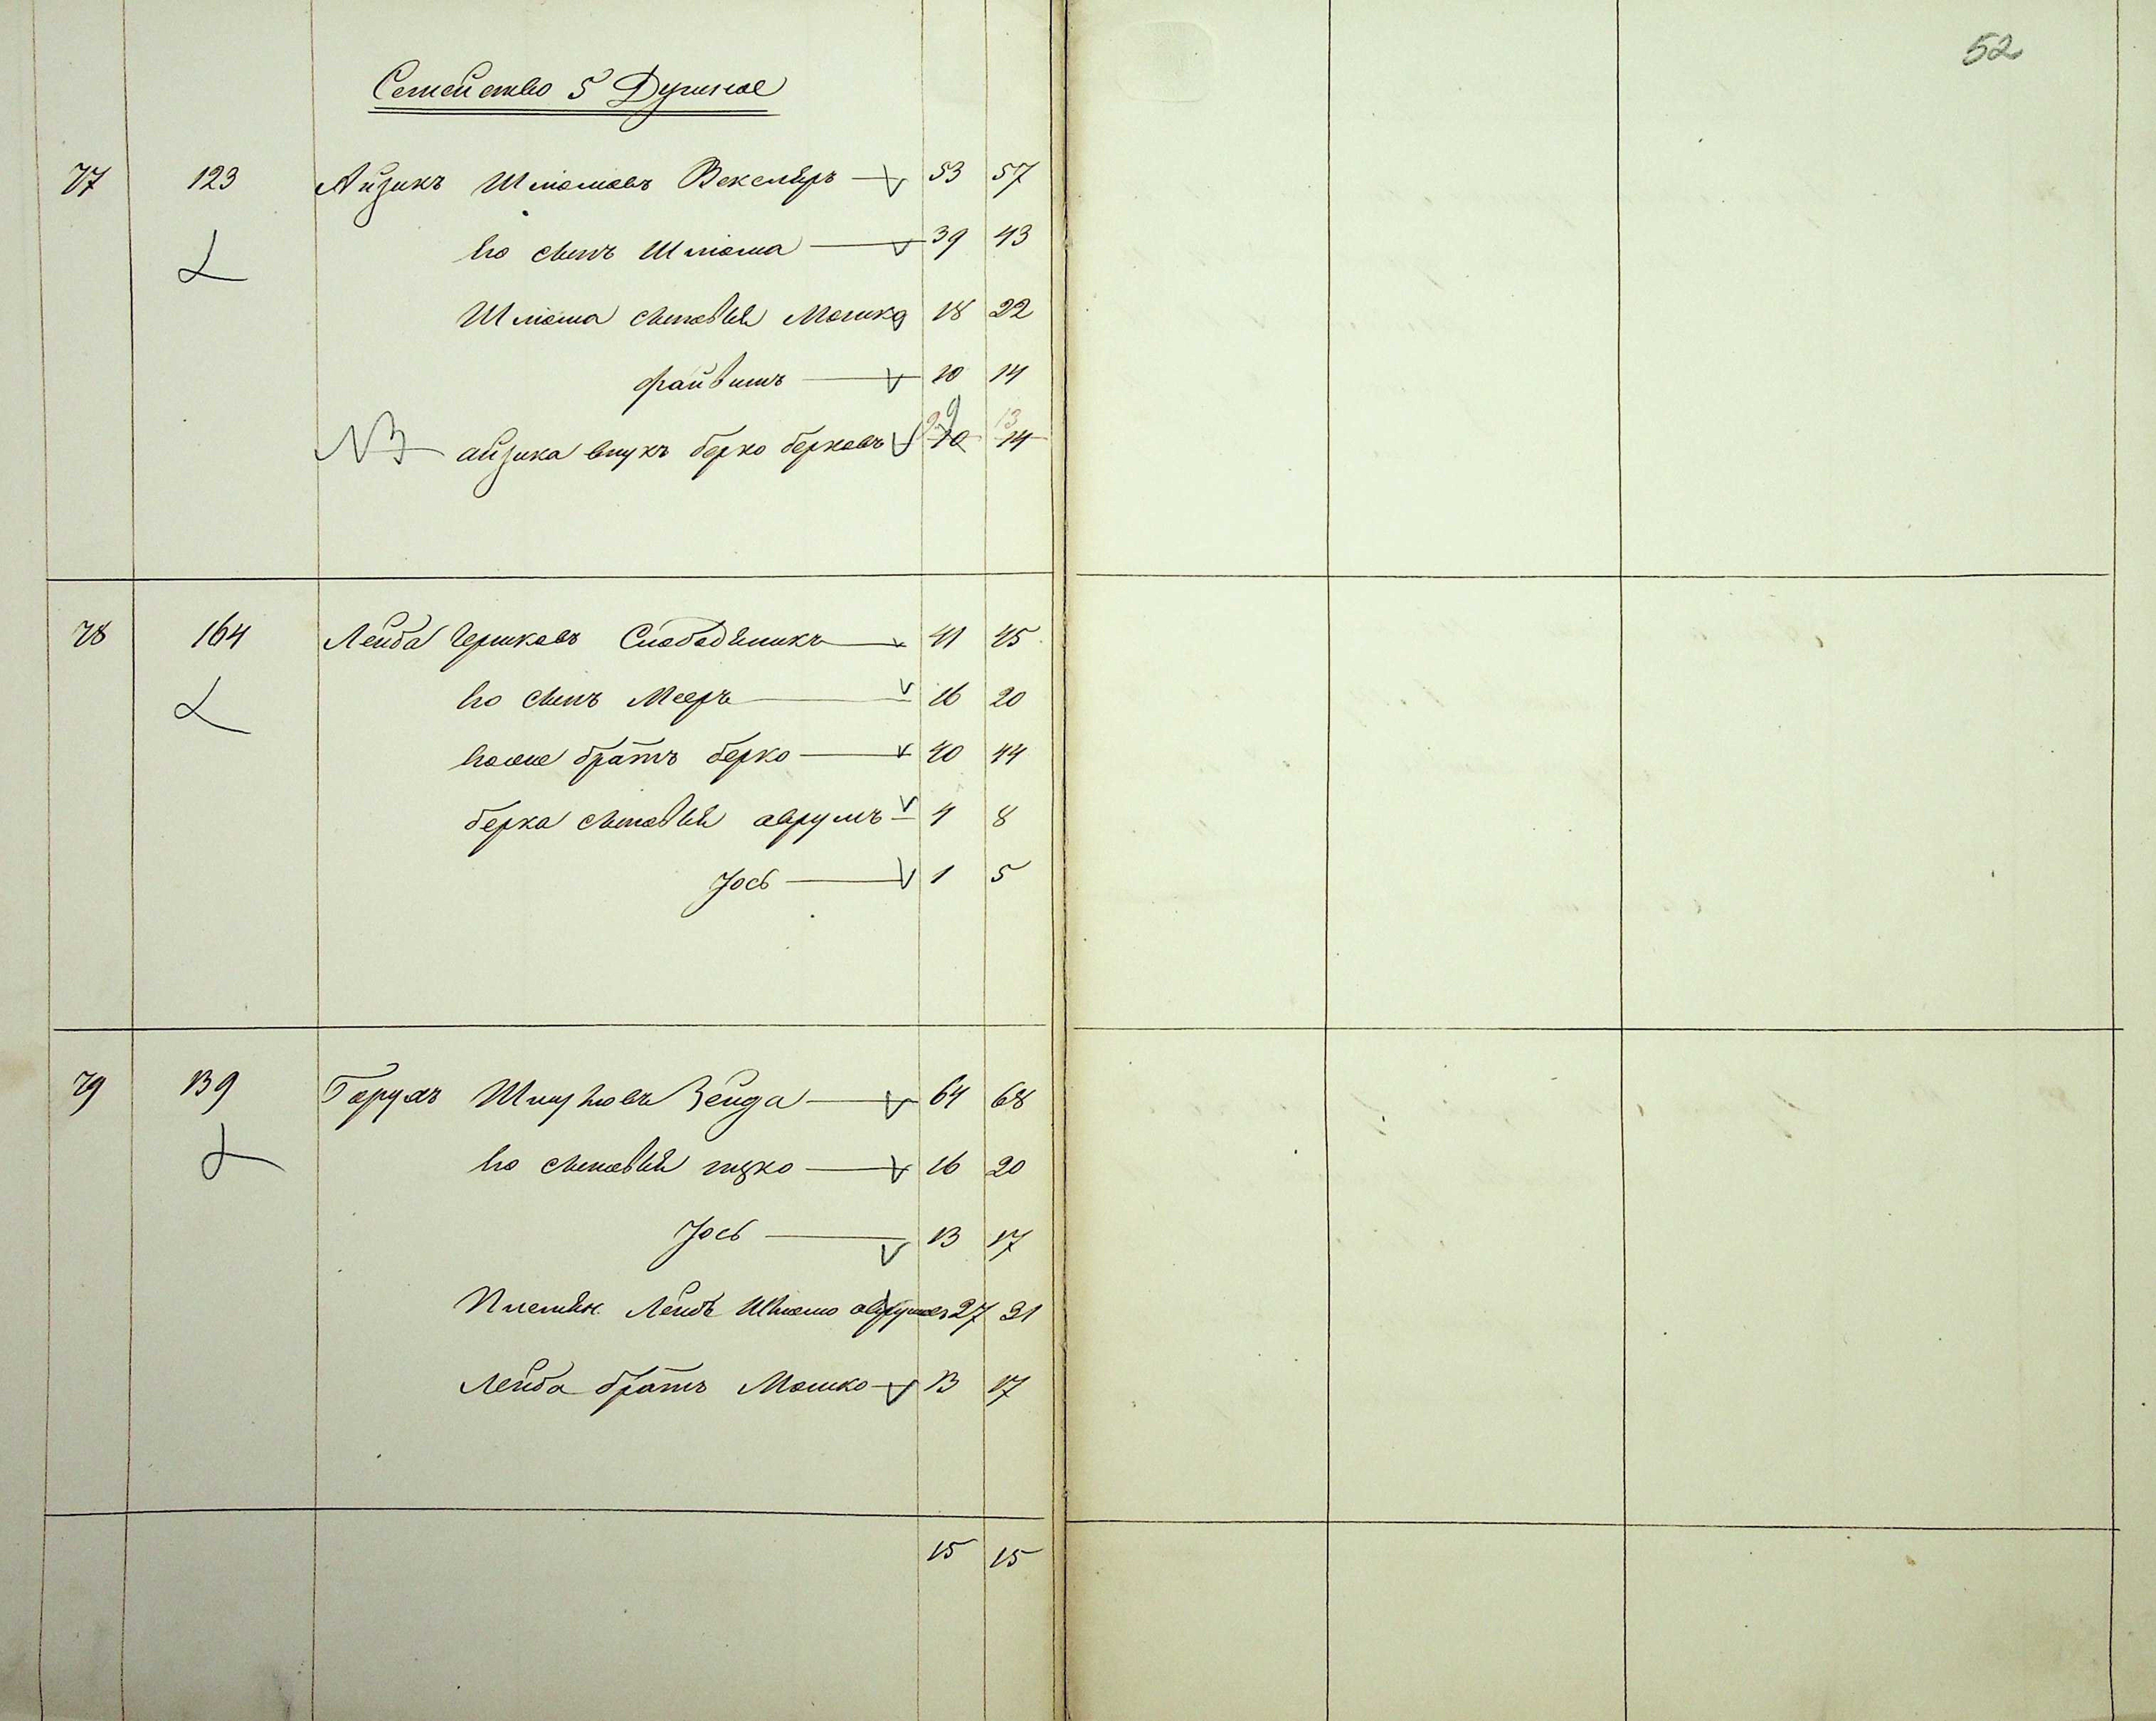 52
Семейство 5 Душное
77 123 Айзикъ Шлiомовъ Векслеръ 53 57
его сынъ Шлiома 39 43
Шлiома сыновья Мошко 18 22
файвишъ 10 14
NB айзика внукъ берко берковъ 10 9 14 13
78 164 Лейба Гершковъ Слободяникъ 41 45
его сынъ Мееръ 16 20
его же братъ берко 40 44
берка сыновья аврумъ 4 8
Iось 1 5
79 139 Борухъ Зейда 64 68
его сыновья ицко 16 20
Iось 13 17
Племян. Лейба Шлiомо аврумов 27 31
Лейба братъ Мошко 13 17
15 15